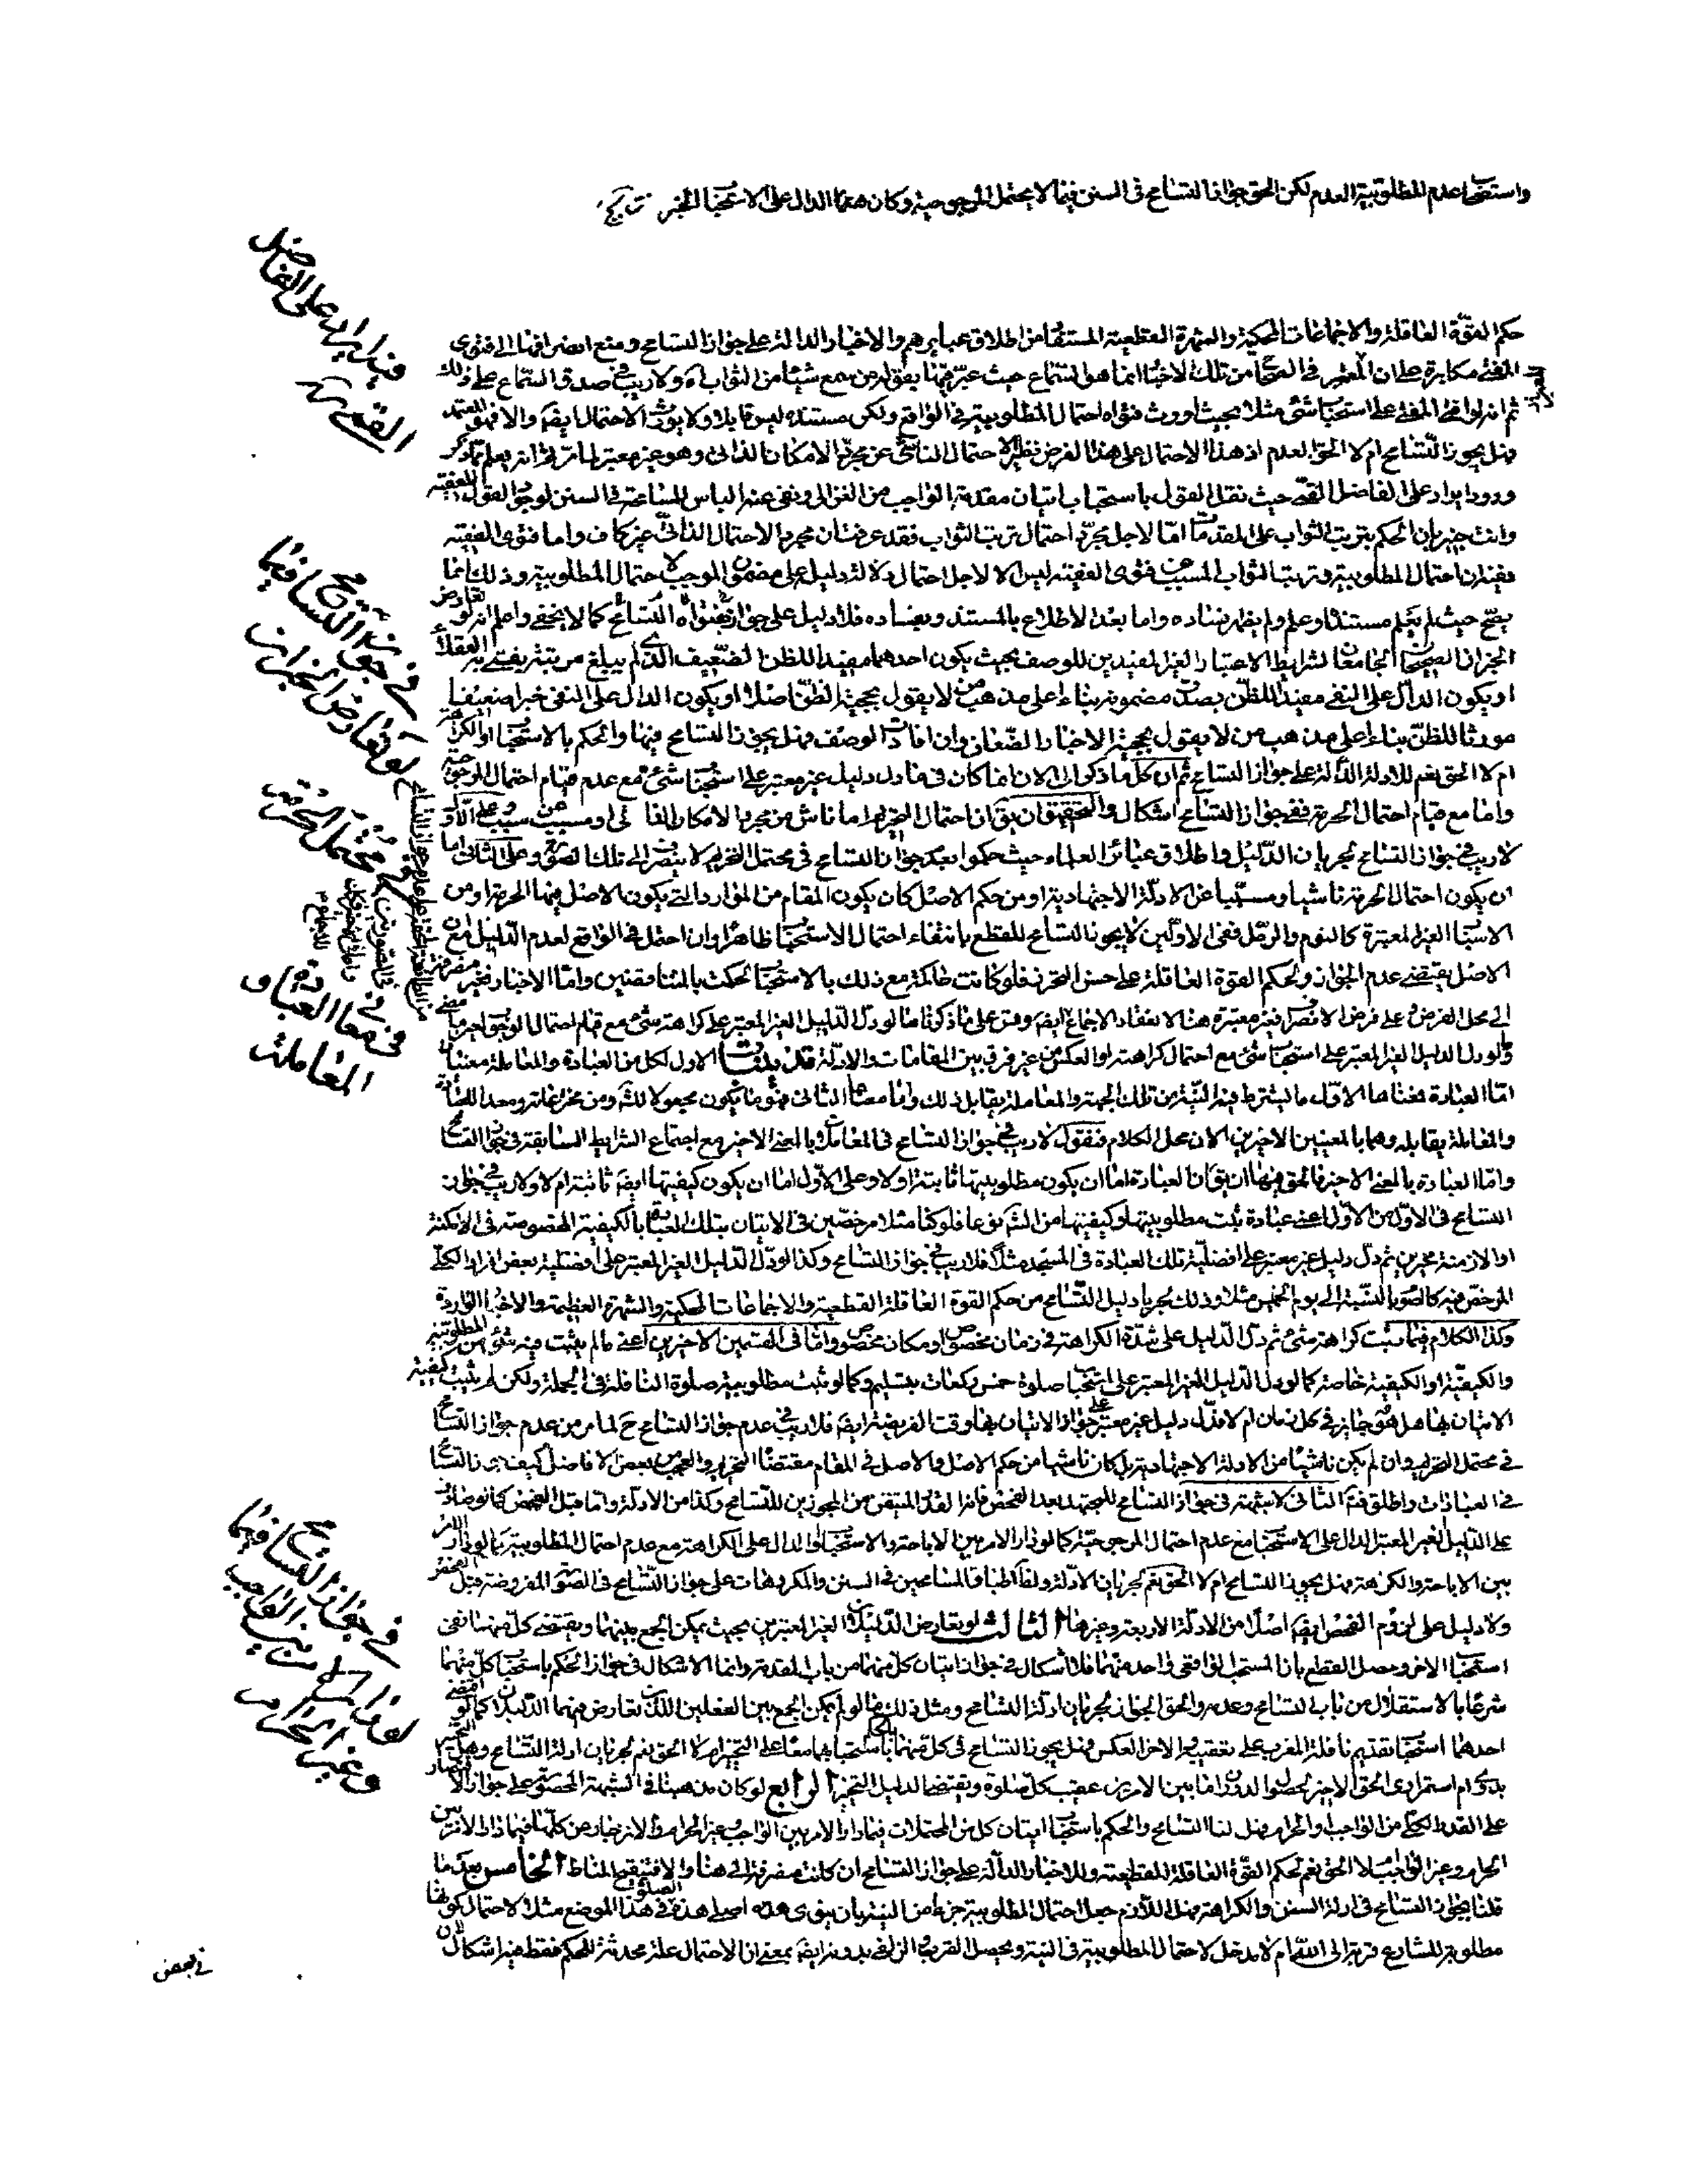 واستصحاب عدم المطلوبية العدم لكن الحق جواز التسامح فى السنن فيما لا يحتمل المرجوحية وكان هما الدال على الاستحباب الخبر
حكم القوة العاقلة والاجماعات المحكية والشهرة القطعية المستفاد من اطلاق عبايرهم والاخبار الدالة على جواز التسامح ومنع انصرافها الى فتوى
المفتى مكابرة على ان المعتبر فى الصحاح من تلك الاخبار انما هو السماع حيث عبر فيها بقوله من سمع شيئا من الثواب اه ولا ريب فى صدق السماع على ذلك
ثم انه لو افتى المفتى على استحباب شئ مثلا بحيث اورث فتواه احتمال المطلوبية فى الواقع ولكن مستنده ليس قابلا ولا يورث الاحتمال ايضا والا فهو المعتمد
فهل يجوز التسامح ام لا الحق العدم اذ هذا الاحتمال على هذا الفرض نظير الاحتمال الناشئ عن مجرد الامكان الذاتى وهو غير معتبر لما مر ثم انه يعلم مما ذكر
ورود ايراد على الفاضل القمى حيث نقل القول باستحباب اتيان مقدمة الواجب من الغزالى ونفى عنه الباس للمسامحة فى السنن لوجود القول للفقيه
وانت خبير بان الحكم بترتب الثواب على المقدمات اما لاجل مجرد احتمال ترتب الثواب فقد عرفت ان مجرد الاحتمال الذاتى غير كاف واما فتوى الفقيه
ففيه ان احتمال المطلوبية وترتب الثواب المسبب عن فتوى الفقيه ليس الا لاجل احتمال دلالة دليل على مضمون الموجب لاحتمال المطلوبية وذلك انما
يصح حيث لم يعلم مستنده او علم ولم يظهر فساده واما بعد الاطلاع بالمستند وبفساده فلا دليل على جواز التسامح كما لا يخفى واعلم انه لو تعارض
الخبران الصحيحان الجامعان لشرايط الاعتبار الغير المفيدين للوصف بحيث يكون احدهما مفيدا للظن الضعيف الذى لم يبلغ مرتبة يعتنى به العقلاء
او يكون الدال على النفى مفيدا للظن بصدق مضمونه بناء على مذهب من لا يقول بحجية الظن اصلا او يكون الدال على النفى خبرا ضعيفا
مورثا للظن بناء على مذهب من لا يقول بحجية الاخبار الضعاف وان افادت الوصف فهل يجوز التسامح فيها والحكم بالاستحباب او الكراهة
ام لا الحق نعم للادلة الدالة على جواز التسامح ثم ان كل ما ذكر الى الان انما كان فى ما دل دليل غير معتبر على استحباب شئ مع عدم قيام احتمال المرجوحية
واما مع قيام احتمال الحرمة ففى جواز التسامح اشكال والتحقيق ان يق ان احتمال التحريم اما ناش من مجرد الامكان الذاتى او مسبب عن سبب وعلى الاول
لا ريب فى جواز التسامح لجريان الدليل واطلاق عبائر العلماء حيث حكموا بعدم جواز التسامح فى محتمل التحريم لا ينصرف الى تلك الصورة وعلى الثانى اما
ان يكون احتمال الحرمة ناشيا ومسببا عن الادلة الاجتهادية او من حكم الاصل كان يكون المقام من الموارد التى يكون الاصل فيها الحرمة او من
الاسباب الغير المعتبرة كالنوم والرمل ففى الاولين لا يجوز التسامح للقطع بانتفاء احتمال الاستحباب ظاهرا وان احتمل فى الواقع لعدم الدليل مع ان
الاصل يقتضى عدم الجواز ولحكم القوة العاقلة على حسن التحرز فلو كانت حاكمة مع ذلك بالاستحباب لحكمت بالمتناقضين واما الاخبار فغير منصرفة
الى محل الفرض وعلى فرض الانصراف فغير معتبرة هنا لانعقاد الاجماع ايضا وقس على ما ذكرنا ما لو دل الدليل الغير المعتبر على كراهة شئ مع قيام احتمال الوجوب
ولو دل الدليل الغير المعتبر على استحباب شئ مع احتمال كراهته او العكس من غير فرق بين المقامات والادلة الاول لكل من العبادة والمعاملة معنيان
اما العبادة فمعناها الاول ما يشترط فيه النية من تلك الجهة والمعاملة يقابل ذلك واما معناها الثانى فهو ما يكون مجعولا لله ومن مخترعاته
والمعاملة يقابله وهما بالمعنيين الاخيرين الان محل الكلام فنقول لا ريب فى جواز التسامح فى المعاملات بالمعنى الاخير مع اجتماع الشرايط السابقة فى جواز التسامح
واما العبادة بالمعنى الاخير فالحق فيها ان يق ان العبادة اما ان يكون مطلوبيتها ثابتة اولا وعلى الاول اما ان يكون كيفيتها ايضا ثابتة ام لا ولا ريب فى جواز
التسامح فى الاول من الاول اعنى عبادة ثبت مطلوبيتها وكيفيتها من الشرع فلو كنا مثلا مرخصين فى الاتيان بتلك العبادة بالكيفية المخصوصة فى الامكنة
او الازمنة مخيرين ثم دل دليل غير معتبر على افضلية تلك العبادة فى المسجد مثلا فلا ريب فى جواز التسامح وكذا لو دل الدليل الغير المعتبر على افضلية بعض افراد الكلى
المرخص فيه كالصوم بالنسبة الى يوم الخميس مثلا وذلك لجريان دليل التسامح من حكم القوة العاقلة القطعية والاجماعات المحكية والشهرة العظيمة والاخبار الواردة
وكذا الكلام فيما ثبت كراهة شئ ثم دل الدليل على شدة الكراهة فى زمان مخصوص او مكان مخصوص واما فى القسمين الاخيرين اعنى ما لم يثبت فيه شئ من المطلوبية
والكيفية او الكيفية خاصة كما لو دل الدليل الغير المعتبر على استحباب صلوة خمس ركعات بتسليم وكما لو ثبت مطلوبية صلوة النافلة فى الجملة ولكن لم يثبت كيفية
الاتيان بها هل هو جايز فى كل زمان ام لا فدل دليل غير معتبر على جواز الاتيان بها وقت الفريضة ايضا فلا ريب فى عدم جواز التسامح ح لما مر من عدم جواز التسامح
فى محتمل التحريم وان لم يكن ناشيا من الادلة الاجتهادية بل كان ناشيا من حكم الاصل والاصل فى المقام مقتضاه التحريم والعجب من بعض الافاضل كيف جوز التسامح
فى العبادات واطلق فيه الثانى لا شبهة فى جواز التسامح للمجتهد بعد الفحص فانه القدر المتيقن من المجوزين للتسامح وكذا من الادلة واما قبل الفحص كما لو صادف
على الدليل الغير المعتبر الدال على الاستحباب مع عدم احتمال المرجوحية كما لو دار الامر بين الاباحة والاستحباب او الدال على الكراهة مع عدم احتمال المطلوبية كما لو دار الامر
بين الاباحة والكراهة فهل يجوز التسامح ام لا الحق نعم لجريان الادلة ولاطباق المتسامحين فى السنن والمكروهات على جواز التسامح فى الصورة المفروضة قبل الفحص
ولا دليل على لزوم الفحص ايضا اصلا من الادلة الاربعة وغيرها الثالث لو تعارض الدليلان الغير المعتبرين بحيث يمكن الجمع بينهما ويقتضى كل منهما نفى
استحباب الاخر وحصل القطع بان المستحب الواقعى واحد منهما فلا اشكال فى جواز اتيان كل منهما من باب المقدمة وانما الاشكال فى جواز الحكم باستحباب كل منهما
شرعا بالاستقلال من باب التسامح وعدمه والحق الجواز لجريان ادلة التسامح ومثل ذلك ما لو لم يمكن الجمع بين الفعلين اللذين تعارض فيهما الدليلان كما لو اقتضى
احدهما استحباب تقديم نافلة المغرب على تعقيبه والاخر العكس فهل يجوز التسامح فى كل منهما بالحكم باستحبابهما معا على التخيير ام لا الحق نعم لجريان ادلة التسامح وهل التخيير
بدوى ام استمرارى الحق الاخير لحصول الدوران ما بين الامرين عقيب كل صلوة ويقتضى الدليل التخيير الرابع لو كان مذهبنا فى الشبهة المحصورة على جواز الاقتصار
على القدر المحكى من الواجب او الحرام فهل لنا التسامح والحكم باستحباب اتيان كل من المحتملات فيما دار الامر بين الواجب وغير الحرام والانزجار من كلها فيما دار الامر بين
الحرام وغير الواجب ام لا الحق نعم لحكم القوة العاقلة القطعية وللاخبار الدالة على جواز التسامح ان كانت منصرفة الى هنا والا فبتنقيح المناط الخامس بعد ما
قلنا بجواز التسامح فى ادلة السنن والكراهة فهل اللازم جعل احتمال المطلوبية جزء من النية بان ينوى هكذا اصلى هذه الصلوة فى هذا الموضع مثلا لاحتمال كونها
مطلوبة للشارع قربة الى الله ام لا مدخل لاحتمال المطلوبية فى النية ويحصل القرب الزلفى بدونه ايضا بمعنى ان الاحتمال علة محدثة للحكم فقط فيه اشكال
فيه ايراد على الفاضل
القمى ره
فى جواز التسامح فيما
لو تعارض الخبران
فى محتمل الحرمة
فى معنى العبادة و
المعاملة
فى جواز التسامح فيما
لو دار الامر بين الواجب
وغير الحرام